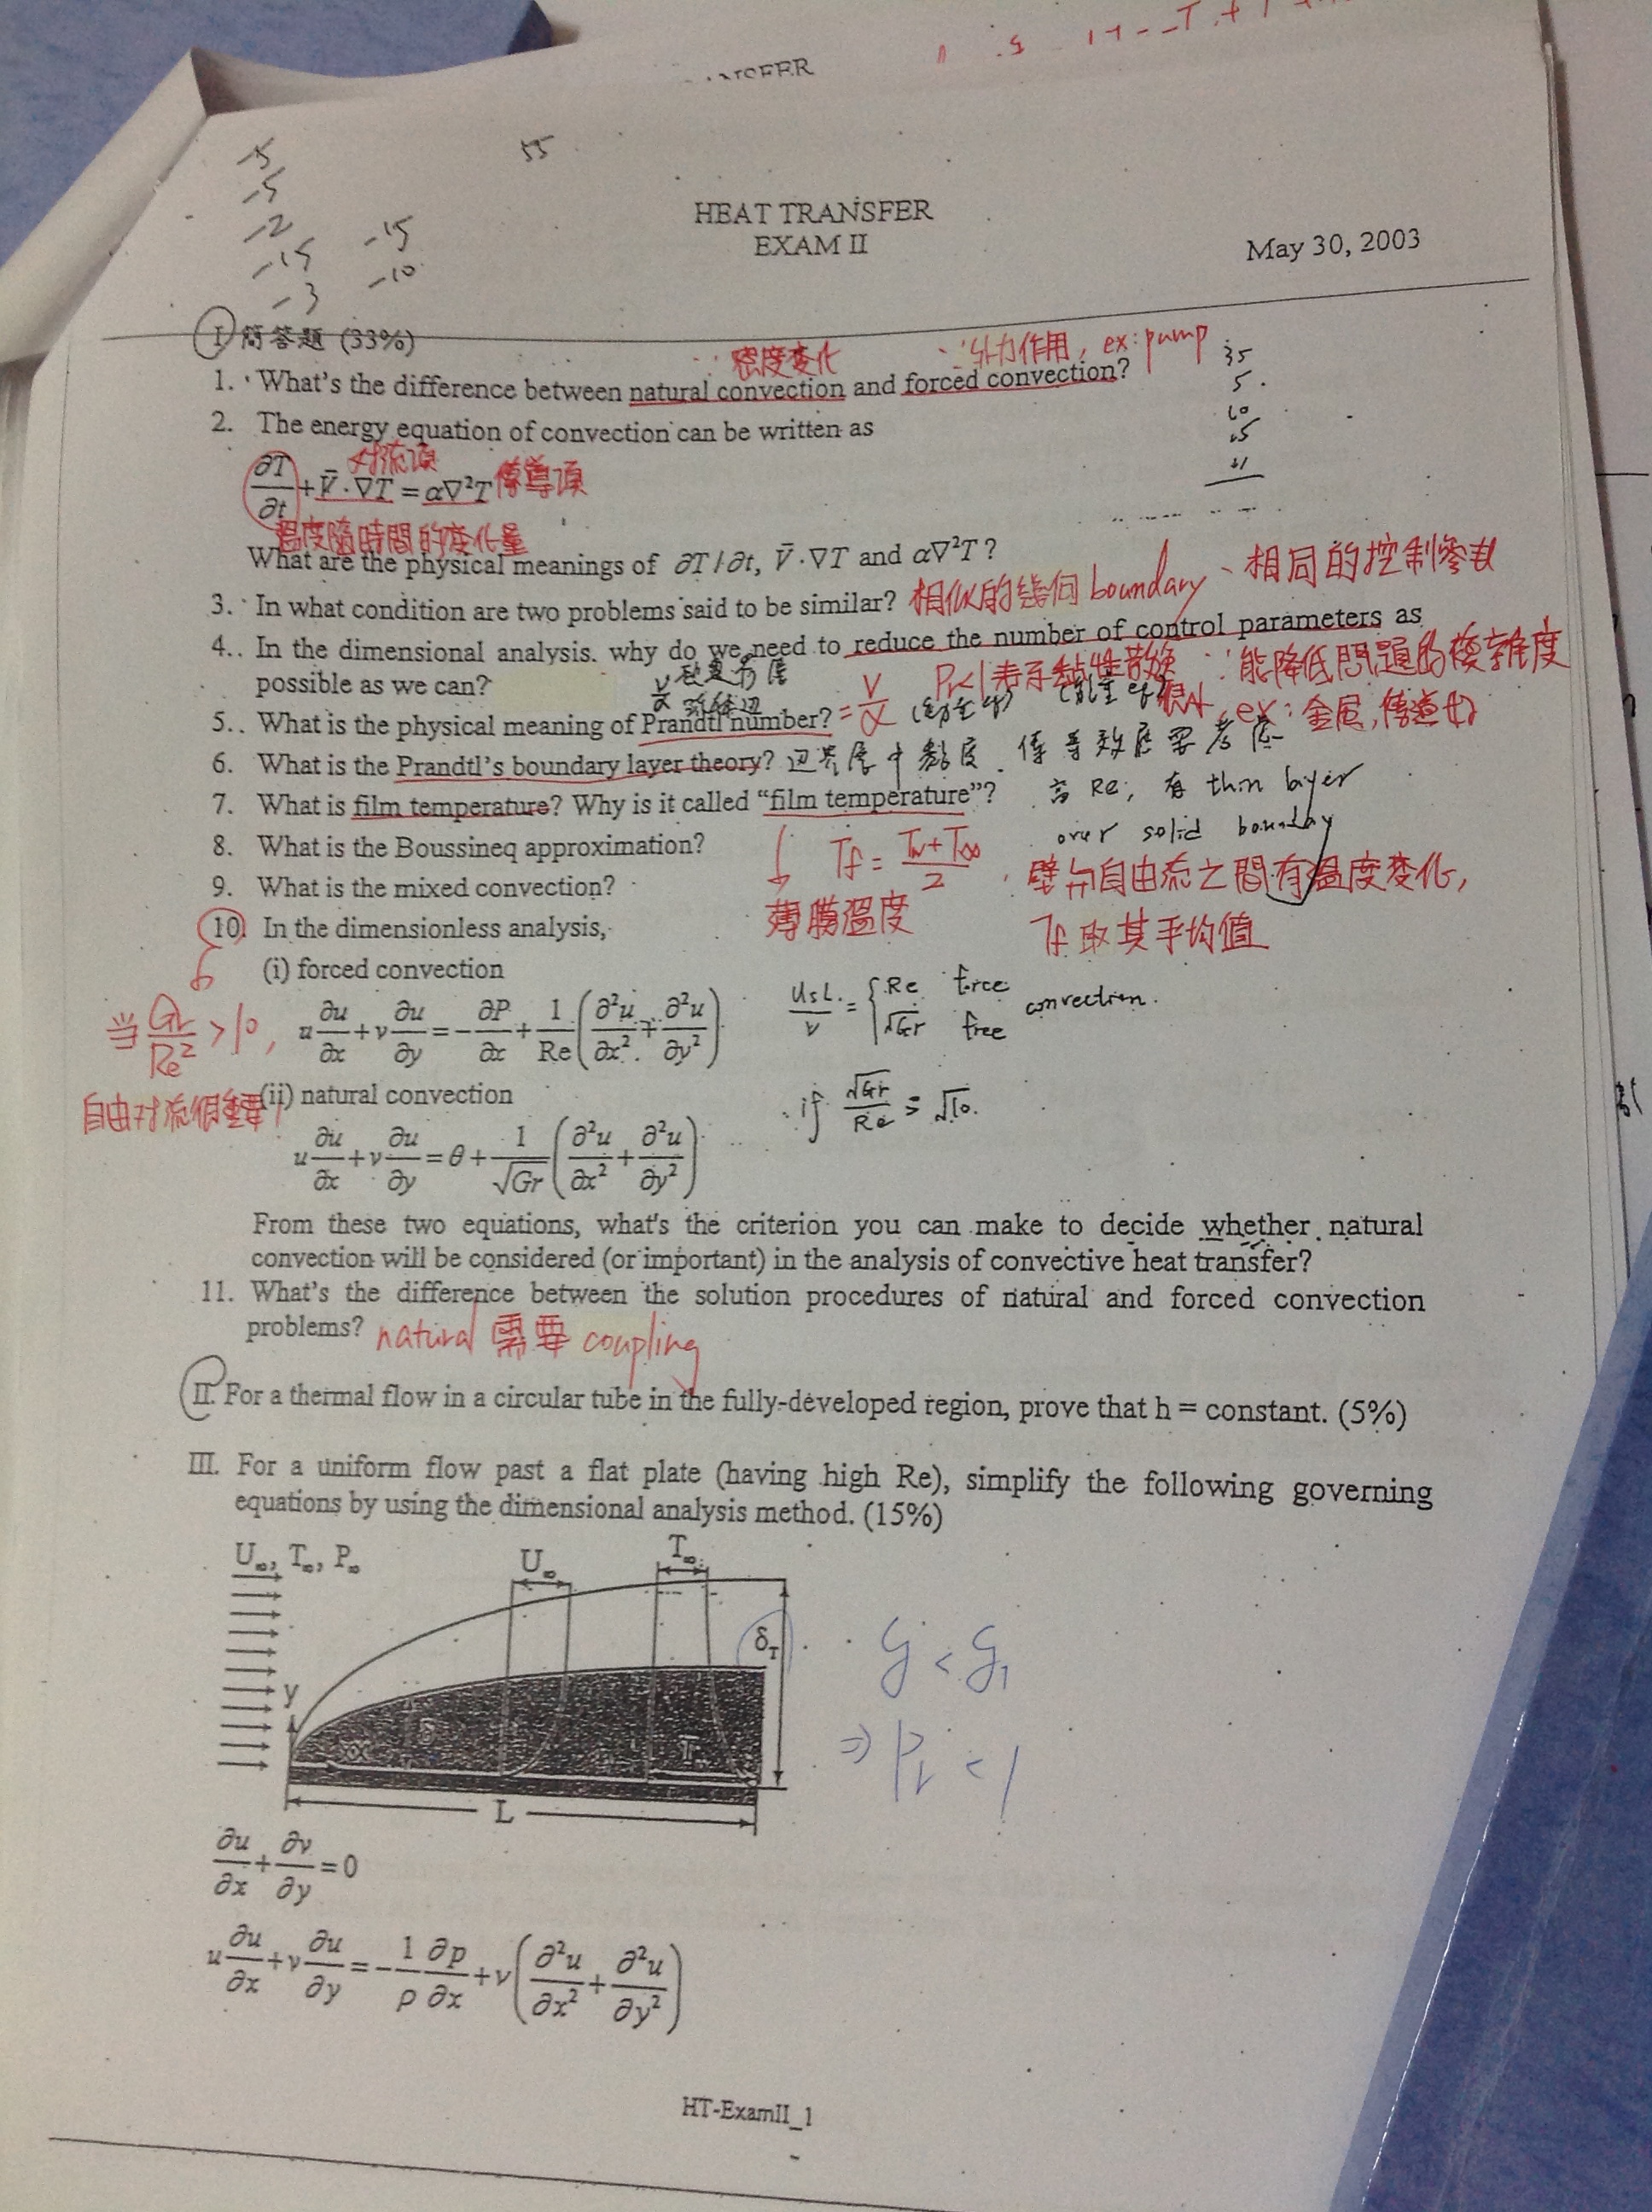 NSFER
-5
-5
-2
-15
-3
-15
-10
55
HEAT TRANSFER
EXAM II
May 30, 2003
I 簡答題 (33%)
∵密度变化
∵外力作用, ex: pump
1. What's the difference between natural convection and forced convection?
35
5
10
15
2. The energy equation of convection can be written as
对流項
∂T/∂t + V̄·∇T = α∇²T 傳導項
温度隨時間的变化量
What are the physical meanings of ∂T/∂t, V̄·∇T and α∇²T?
3. In what condition are two problems said to be similar? 相似的幾何 boundary、相同的控制參數
4.. In the dimensional analysis. why do we need to reduce the number of control parameters as
possible as we can?
∵能降低問題的複雜度
Pr<1表示黏性散換
很小, ex: 金屬,傳導好
5.. What is the physical meaning of Prandtl number? = ν/α
6. What is the Prandtl's boundary layer theory? 边界層中黏度、傳導效应要考慮
7. What is film temperature? Why is it called “film temperature”?
高 Re, 有 thin layer
over solid boundary
↓
薄膜溫度
Tf = (Tw+T∞)/2 , 壁与自由流之間有温度变化,
Tf 取其平均値
8. What is the Boussineq approximation?
9. What is the mixed convection?
10. In the dimensionless analysis,
(i) forced convection
当 Gr/Re² > 10,
自由对流很重要
u ∂u/∂x + v ∂u/∂y = -∂P/∂x + 1/Re (∂²u/∂x² + ∂²u/∂y²)
UsL/ν = { Re force
√Gr free
convection.
(ii) natural convection
if √Gr/Re ≥ √10.
u ∂u/∂x + v ∂u/∂y = θ + 1/√Gr (∂²u/∂x² + ∂²u/∂y²)
From these two equations, what's the criterion you can make to decide whether natural
convection will be considered (or important) in the analysis of convective heat transfer?
11. What's the difference between the solution procedures of natural and forced convection
problems? natural 需要 coupling
II. For a thermal flow in a circular tube in the fully-developed region, prove that h = constant. (5%)
III. For a uniform flow past a flat plate (having high Re), simplify the following governing
equations by using the dimensional analysis method. (15%)
U∞, T∞, P∞
U∞
T∞
δT
y
L
δ < δT
⇒ Pr < 1
∂u/∂x + ∂v/∂y = 0
u ∂u/∂x + v ∂u/∂y = -1/ρ ∂p/∂x + ν (∂²u/∂x² + ∂²u/∂y²)
HT-ExamII_1